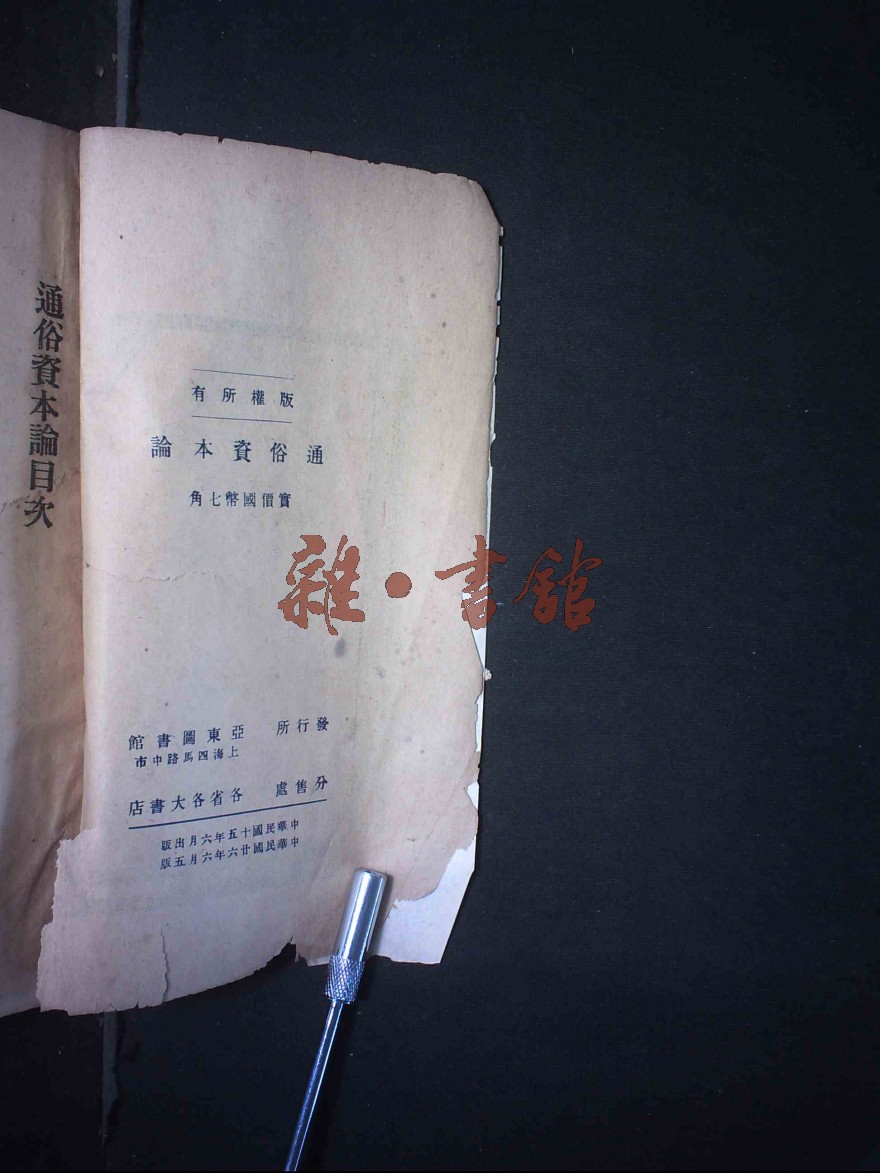 版權所有
通俗資本論
實價國幣七角
發行所 亞東圖書館
上海四馬路中市
分售處 各省各大書店
中華民國十五年六月出版
中華民國廿六年六月五版
通俗資本論目次
雜·書館